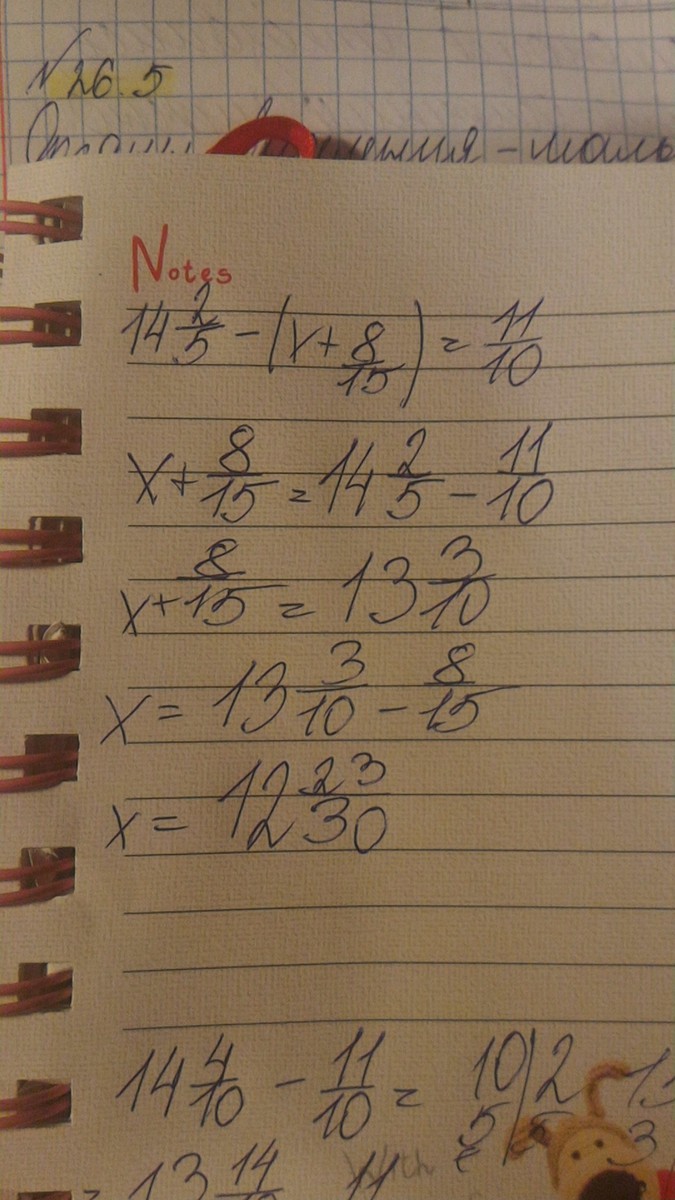 N 26.5
Notes
14 2/5 - (x + 8/15) = 11/10
x + 8/15 = 14 2/5 - 11/10
x + 8/15 = 13 3/10
x = 13 3/10 - 8/15
x = 12 23/30
14 4/10 - 11/10 = 10 | 2
5
3
= 13 14/10 11
With